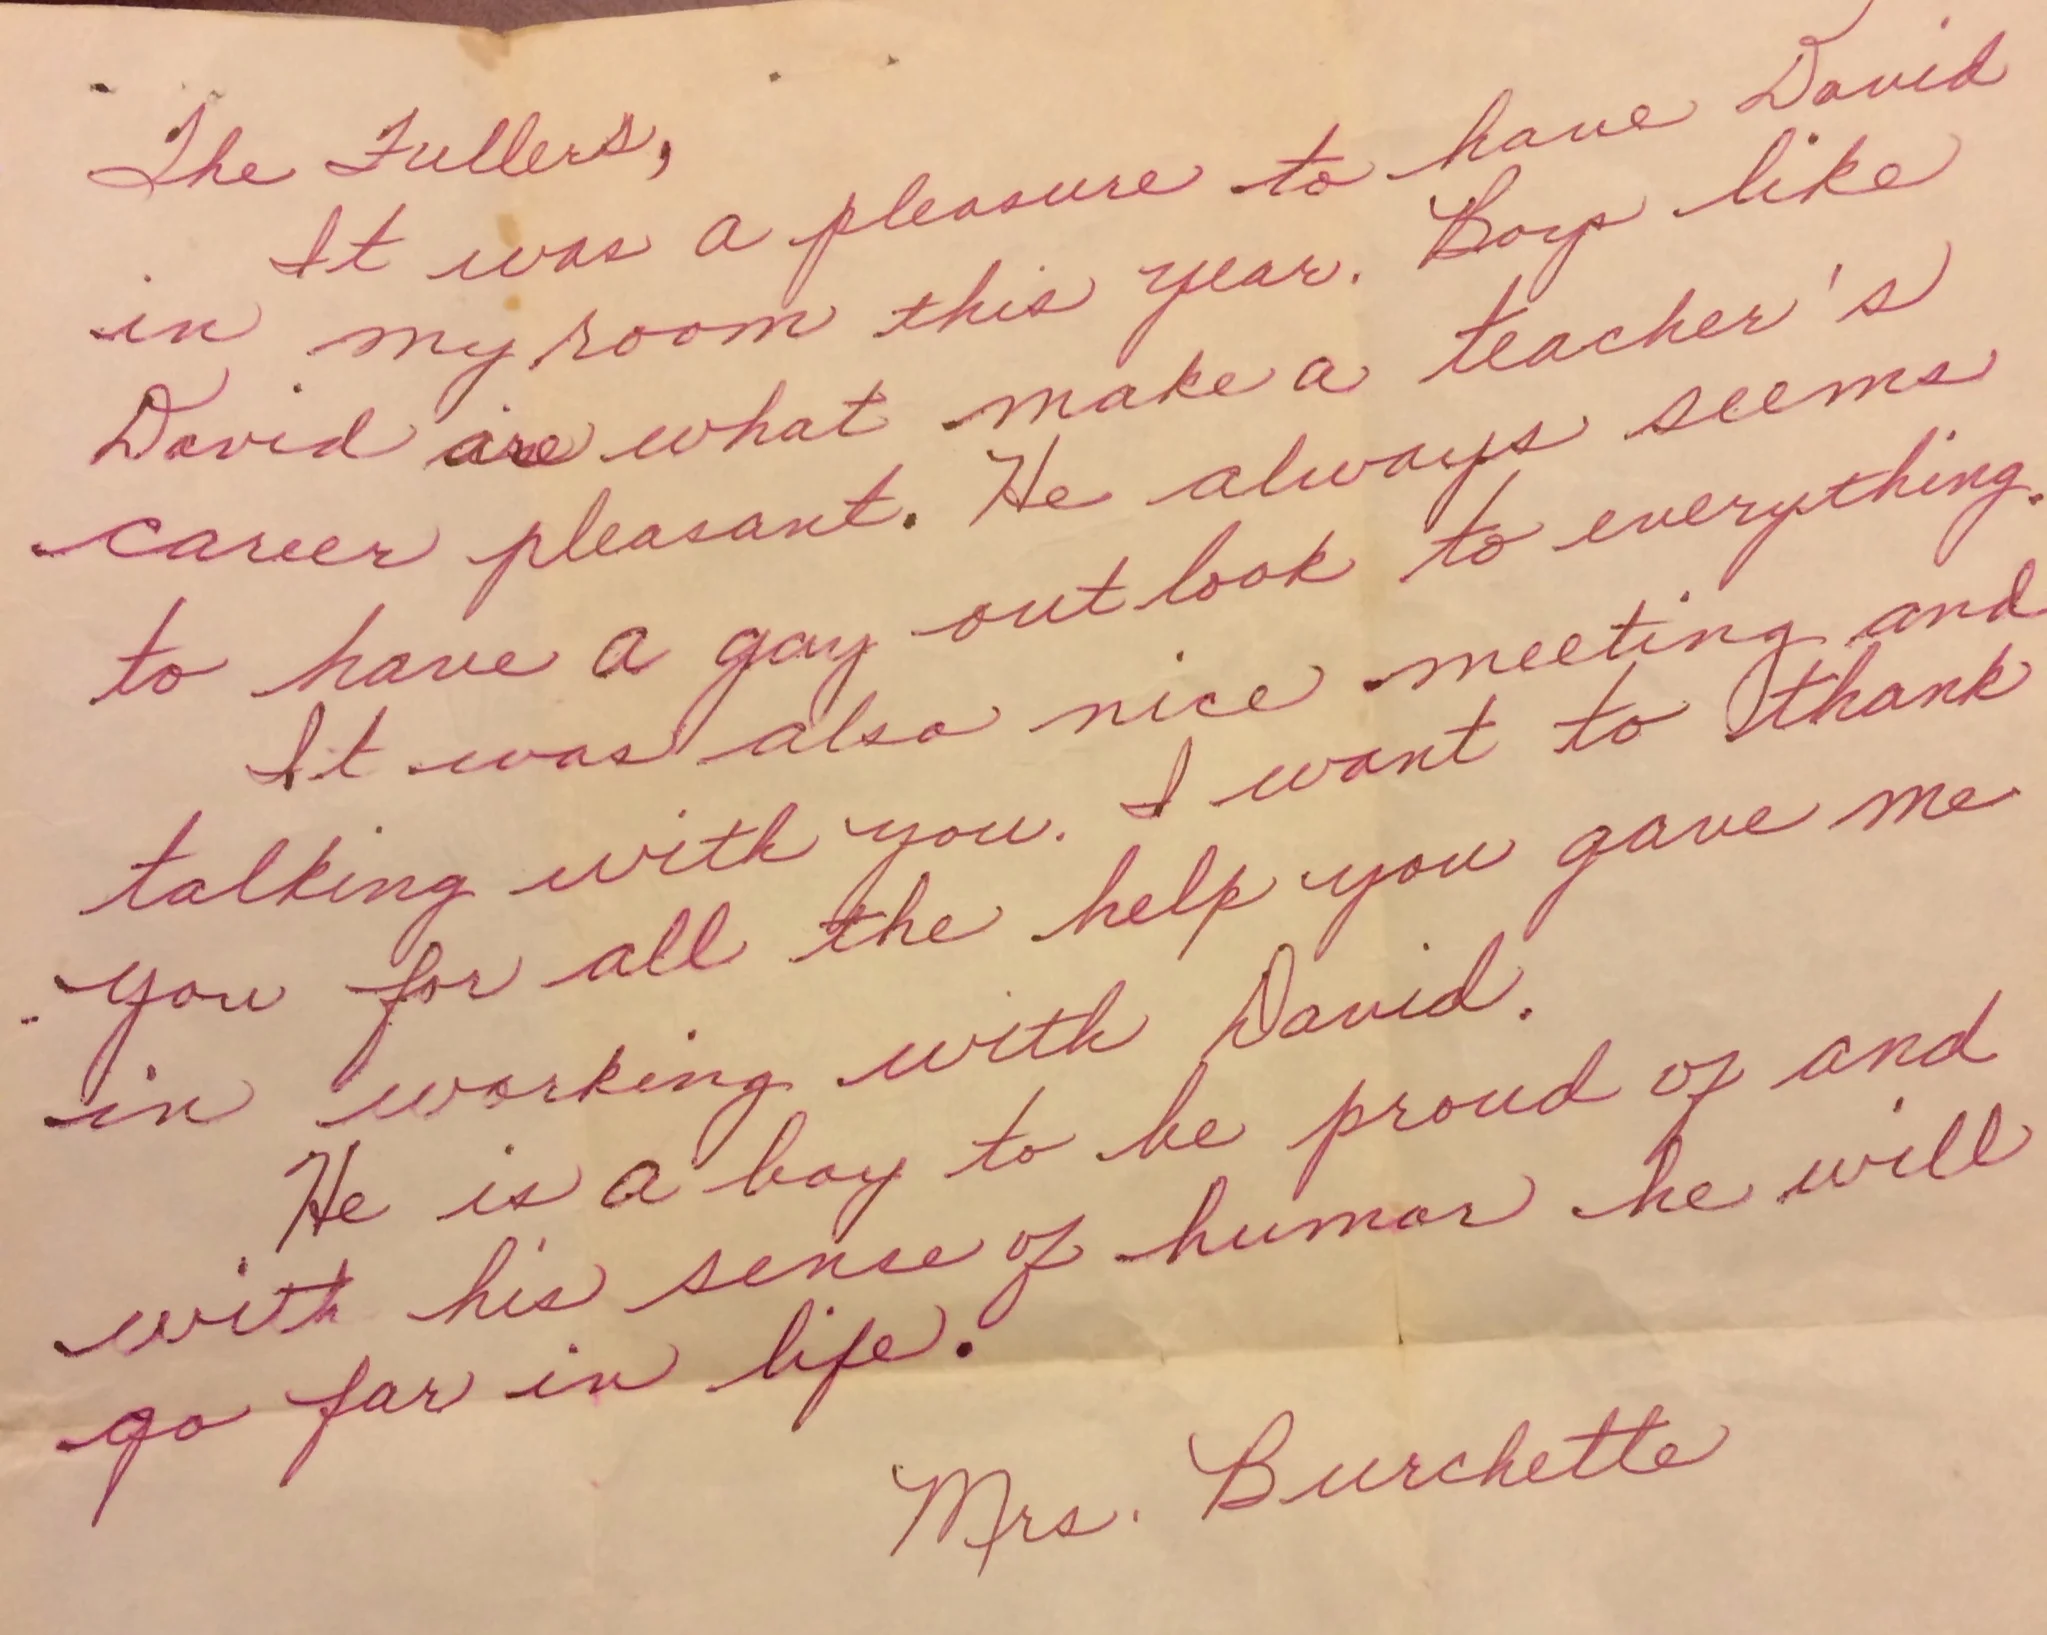 The Fullers,
It was a pleasure to have David
in my room this year. Boys like
David are what make a teacher's
career pleasant. He always seems
to have a gay outlook to everything.
It was also nice meeting and
talking with you. I want to thank
you for all the help you gave me
in working with David.
He is a boy to be proud of and
with his sense of humor he will
go far in life.
Mrs. Burchette